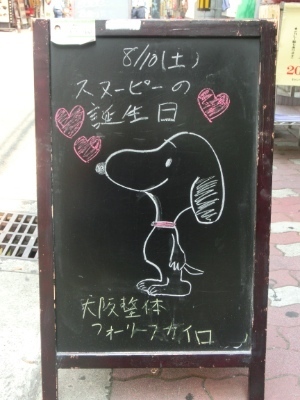 8/10(土)
スヌーピーの
誕生日
大阪整体
フォーリーフカイロ
20